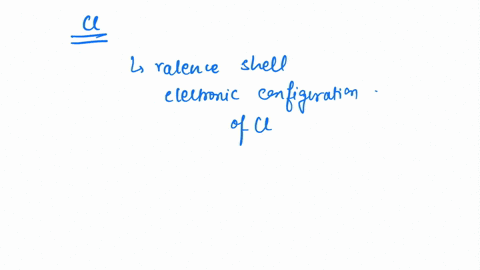 Cl
↳ valence shell
electronic configuration .
of Cl